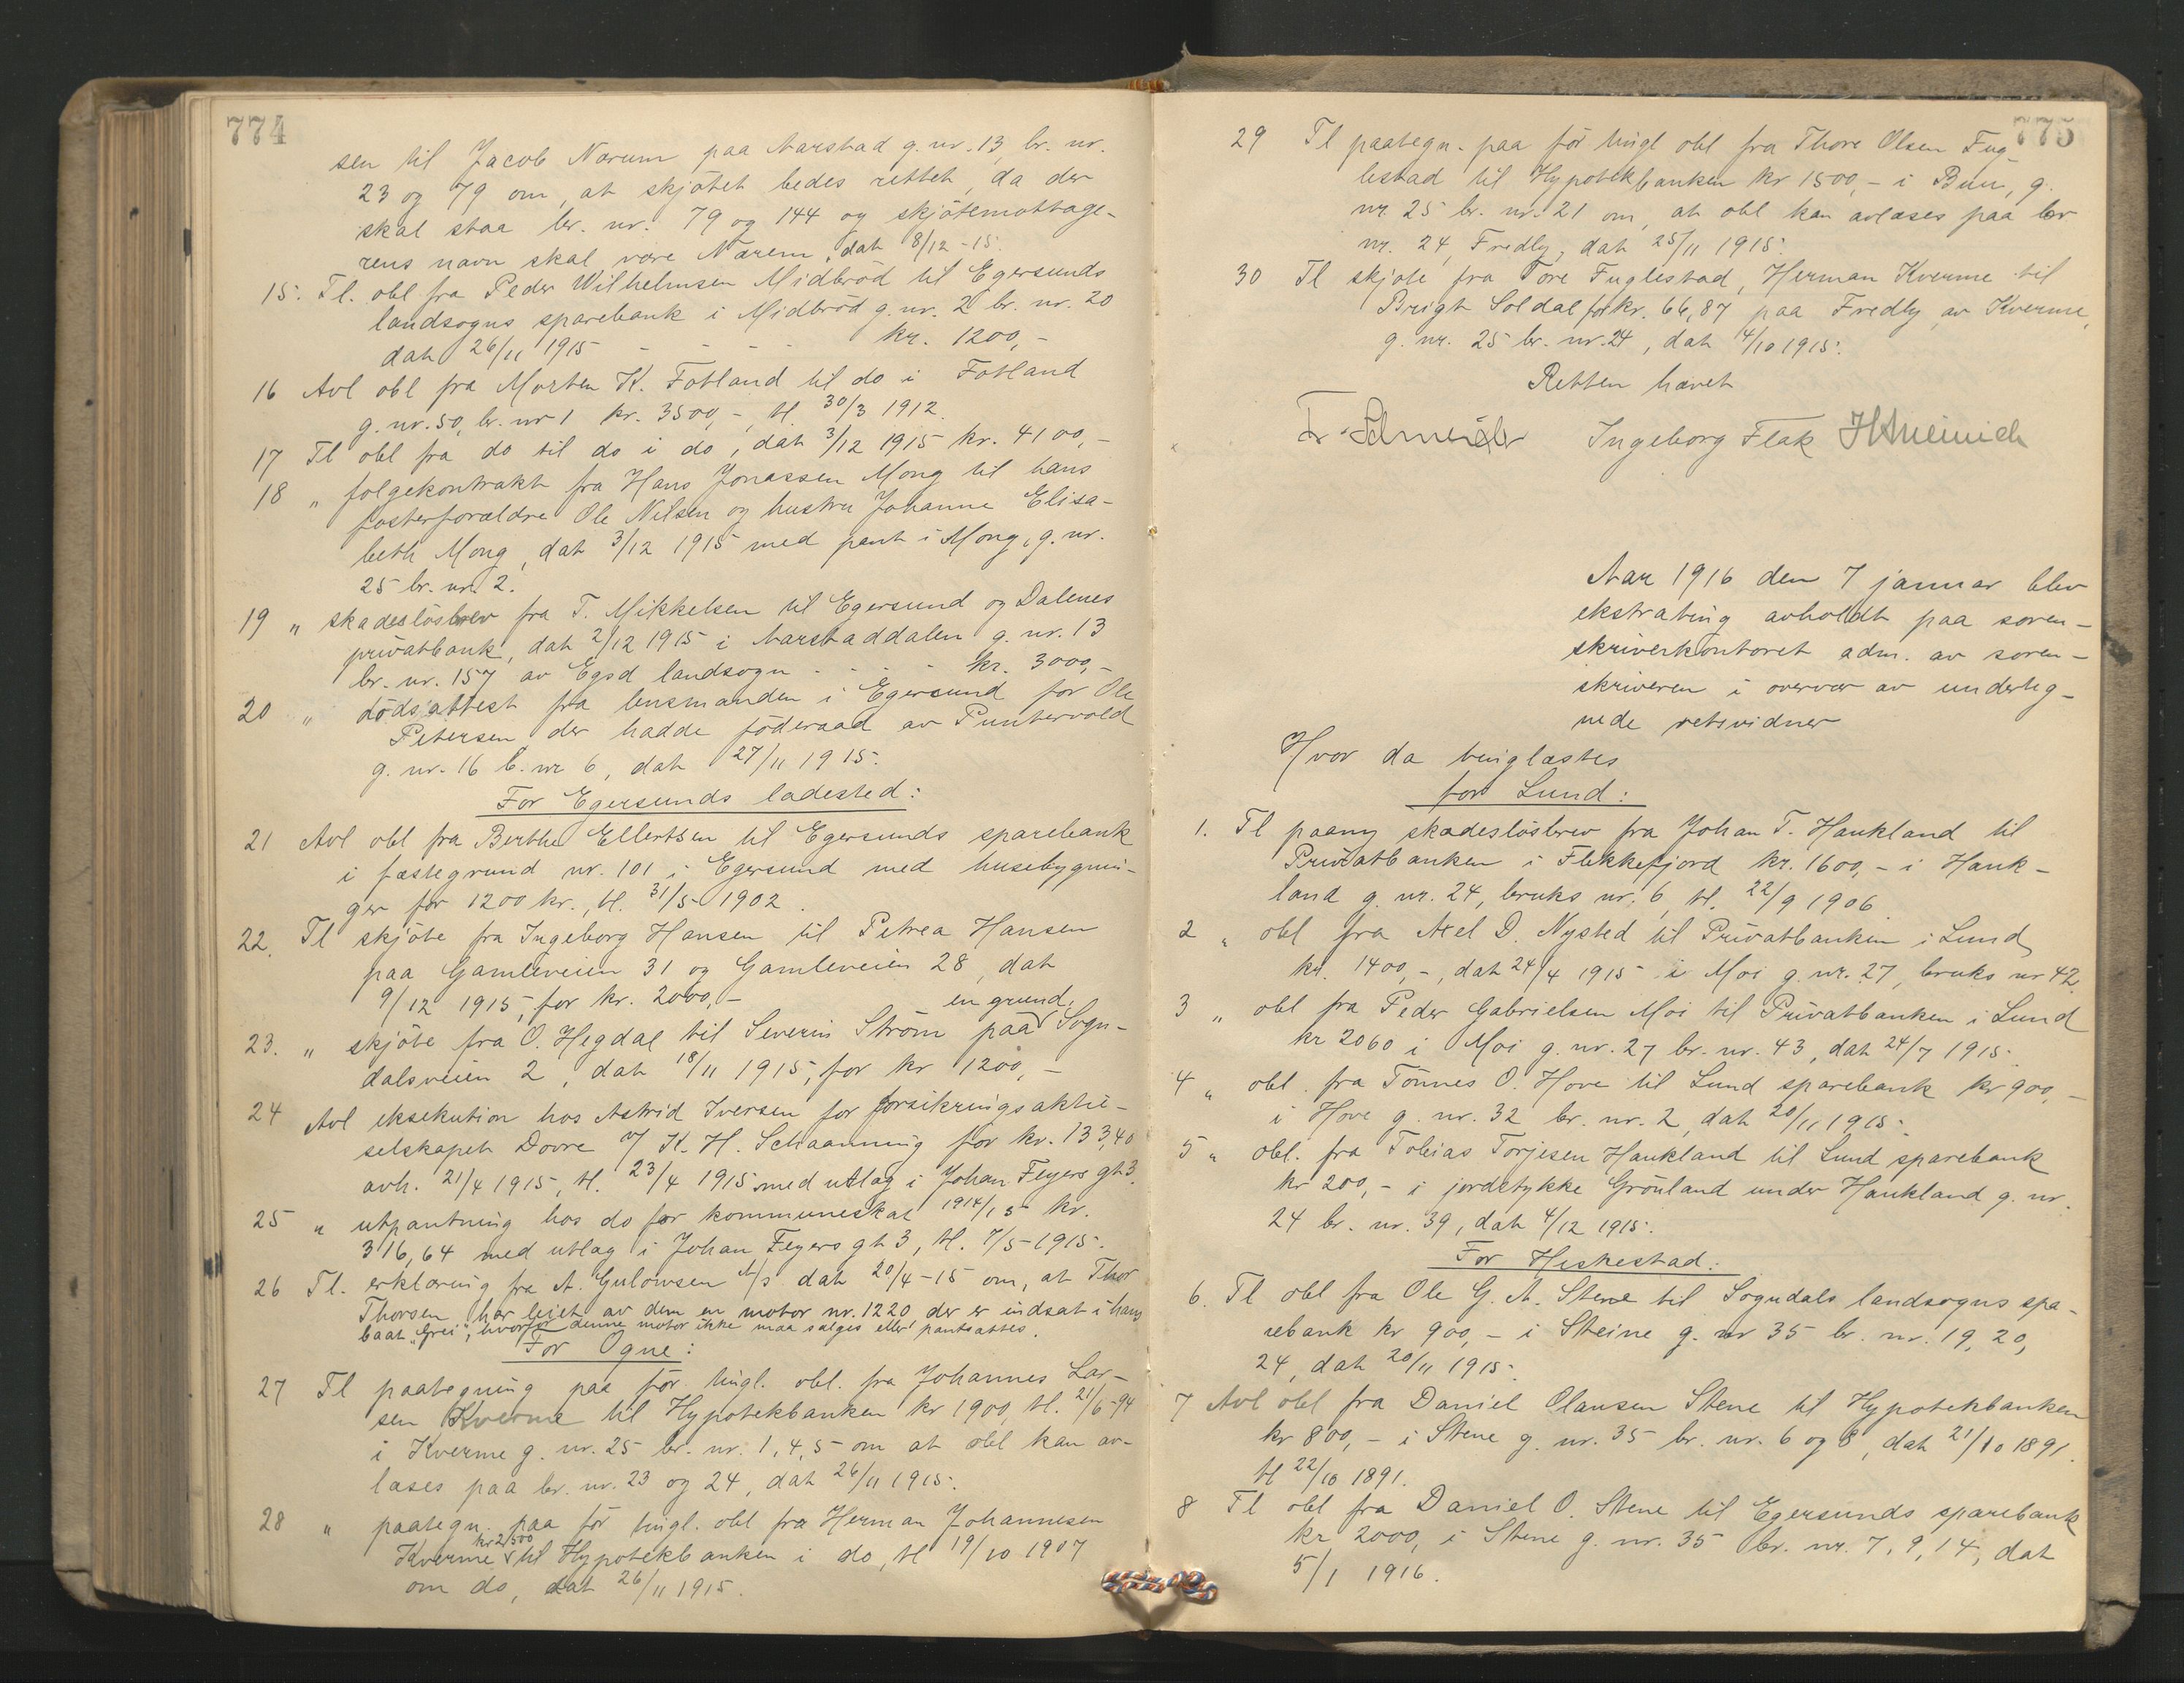 774
sen til Jacob Narum paa Aarstad g. nr. 13, br. nr.
23 og 79 om, at skjøtet bedes rettet, da der
skal staa br. nr. 79 og 144 og skjøtemottage-
rens navn skal være Nærem, dat 8/12 - 15.
15. Tl. obl fra Peder Wilhelmsen Midbrød til Egersunds
landsogns sparebank i Midbrød g. nr. 2 br. nr. 20
dat 26/11 1915 - - - - kr. 1200,-
16 Avl obl fra Morten K. Fotland til do i Fotland
g. nr. 50, br. nr 1 kr. 3500,-, tl. 30/3 1912.
17 Tl obl fra do til do i do, dat 3/12 1915 kr. 4100,-
18 " følgekontrakt fra Hans Jonassen Mong til hans
fosterforældre Ole Nilsen og hustru Johanne Elisa-
beth Mong, dat 3/12 1915 med pant i Mong, g. nr.
25 br. nr. 2.
19 " skadesløsbrev fra T. Mikkelsen til Egersund og Dalenes
privatbank, dat 2/12 1915 i Aarstaddalen g. nr. 13
br. nr. 157 av Egsd landsogn - - - - kr. 3000,-
20 " dødsattest fra lensmanden i Egersund for Ole
Petersen der hadde føderaad av Puntervold
g. nr. 16 b. nr 6, dat 27/11 1915.
For Egersunds ladested:
21 Avl obl fra Berthe Ellertsen til Egersunds sparebank
i fæstegrund nr. 101 i Egersund med husebygnin-
ger for 1200 kr., tl. 31/5 1902.
22. Tl skjøte fra Ingeborg Hansen til Petrea Hansen
paa Gamleveien 31 og Gamleveien 28, dat
9/12 1915, for kr. 2000,-
en grund,
23. " skjøte fra O. Hegdal til Severin Strøm paa Sogn-
dalsveien 2, dat 18/11 1915, for kr 1200,-
24 Avl eksekution hos Astrid Iversen for forsikringsaktie-
selskapet Dovre v/ K. H. Schaanning for kr. 133,40
avh. 21/4 1915, tl. 23/4 1915 med utlag i Johan Feyers gt 3.
25 " utpantning hos do for kommuneskat 1914/15 kr.
316,64 med utlag i Johan Feyers gt 3, tl. 7/5 - 1915.
26 Tl. erklæring fra A. Gulowsen A/s dat 20/4 - 15 om, at Thor
Thorsen har leiet av dem en motor nr. 1220 der er indsat i hans
baat "Grei", hvorfor denne motor ikke maa sælges eller pantsættes.
For Ogne:
27 Tl paategning paa før tingl. obl. fra Johannes Lar-
sen Kverme til Hypotekbanken kr 1900, tl. 21/6 - 94
i Kverme g. nr. 25 br. nr. 1, 4, 5 om at obl kan av-
læses paa br. nr. 23 og 24, dat 26/11 1915.
28 " paategn. paa før tingl. obl fra Herman Johannesen
kr 2500
Kverme til Hypotekbanken i do, tl 19/10 1907
om do, dat 26/11 1915.
775
29 Tl paategn. paa før tingl obl fra Thore Olsen Fug-
lestad til Hypotekbanken kr 1500,- i Bue, g.
nr. 25 br. nr. 21 om, at obl kan avlæses paa br
nr. 24, Fredly, dat 25/11 1915.
30 Tl skjøte fra Tore Fuglestad, Herman Kverme til
Brigt Soldal for kr. 66,87 paa Fredly av Kverme,
g. nr. 25 br. nr. 24, dat 4/10 1915.
Retten hævet
Fr. Schneider Ingeborg Flak
Aar 1916 den 7 januar blev
ekstrating avholdt paa soren-
skriverkontoret adm. av soren-
skriveren i overvær av underteg-
nede retsvidner
Hvor da tinglæstes
for Lund:
1. Tl paany skadesløsbrev fra Johan T. Haukland til
Privatbanken i Flekkefjord kr. 1600,- i Hauk-
land g. nr. 24, bruks nr. 6, tl. 22/9 1906.
2 " obl fra Axel D. Nysted til Privatbanken i Lund
kr. 1400,-, dat 24/4 1915 i Moi g. nr. 27, bruks nr 42.
3 " obl fra Peder Gabrielsen Moi til Privatbanken i Lund
kr 2060 i Moi g. nr. 27 br. nr. 43, dat 24/7 1915.
4 " obl. fra Tønnes O. Hove til Lund sparebank kr 900,-
i Hove g. nr. 32 br. nr. 2, dat 20/11 1915.
5 " obl. fra Tobias Torjesen Haukland til Lund sparebank
kr 200,- i jordstykke Grønland under Haukland g. nr.
24 br. nr. 39, dat 4/12 1915.
For Heskestad:
6. Tl obl fra Ole G. A. Stene til Sogndals landsogns spa-
rebank kr 900,- i Steine g. nr 35 br. nr. 19, 20,
24, dat 20/11 1915.
7 Avl obl fra Daniel Olausen Stene til Hypotekbanken
kr 800,- i Stene g. nr. 35 br. nr. 6 og 8, dat 21/10 1891.
tl 22/10 1891.
8 Tl obl fra Daniel O. Stene til Egersunds sparebank
kr 2000, i Stene g. nr. 35 br. nr. 7, 9, 14, dat
5/1 1916.